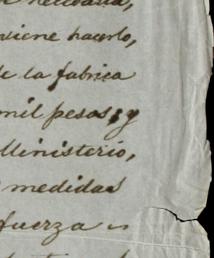 necesaria,
viene hacerlo,
de la fabrica
mil pesos, y
Ministerio,
medidas
fuerza